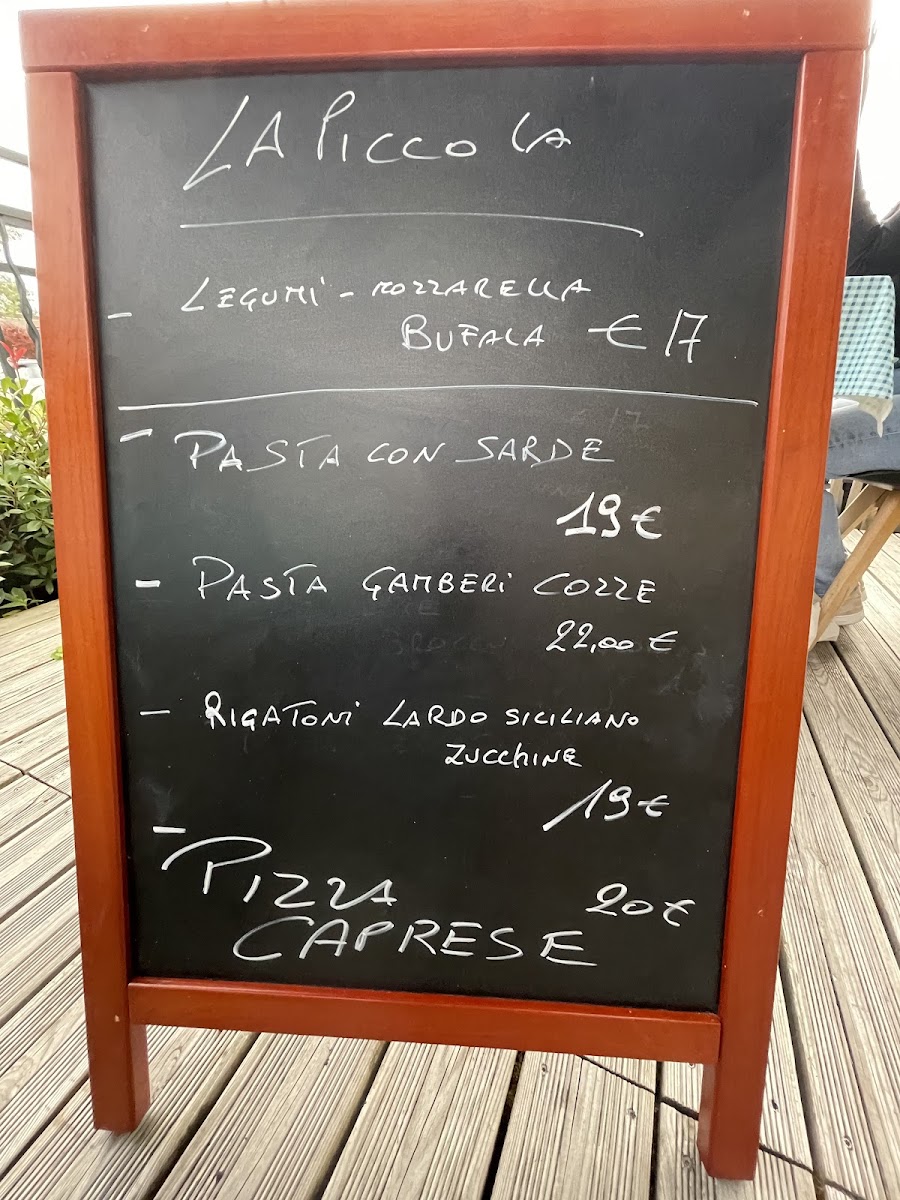 LA PICCOLA
- LEGUMI - MOZZARELLA
BUFALA € 17
- PASTA CON SARDE
19 €
- PASTA GAMBERI COZZE
22,00 €
- RIGATONI LARDO SICILIANO
ZUCCHINE
19 €
- PIZZA 20 €
CAPRESE